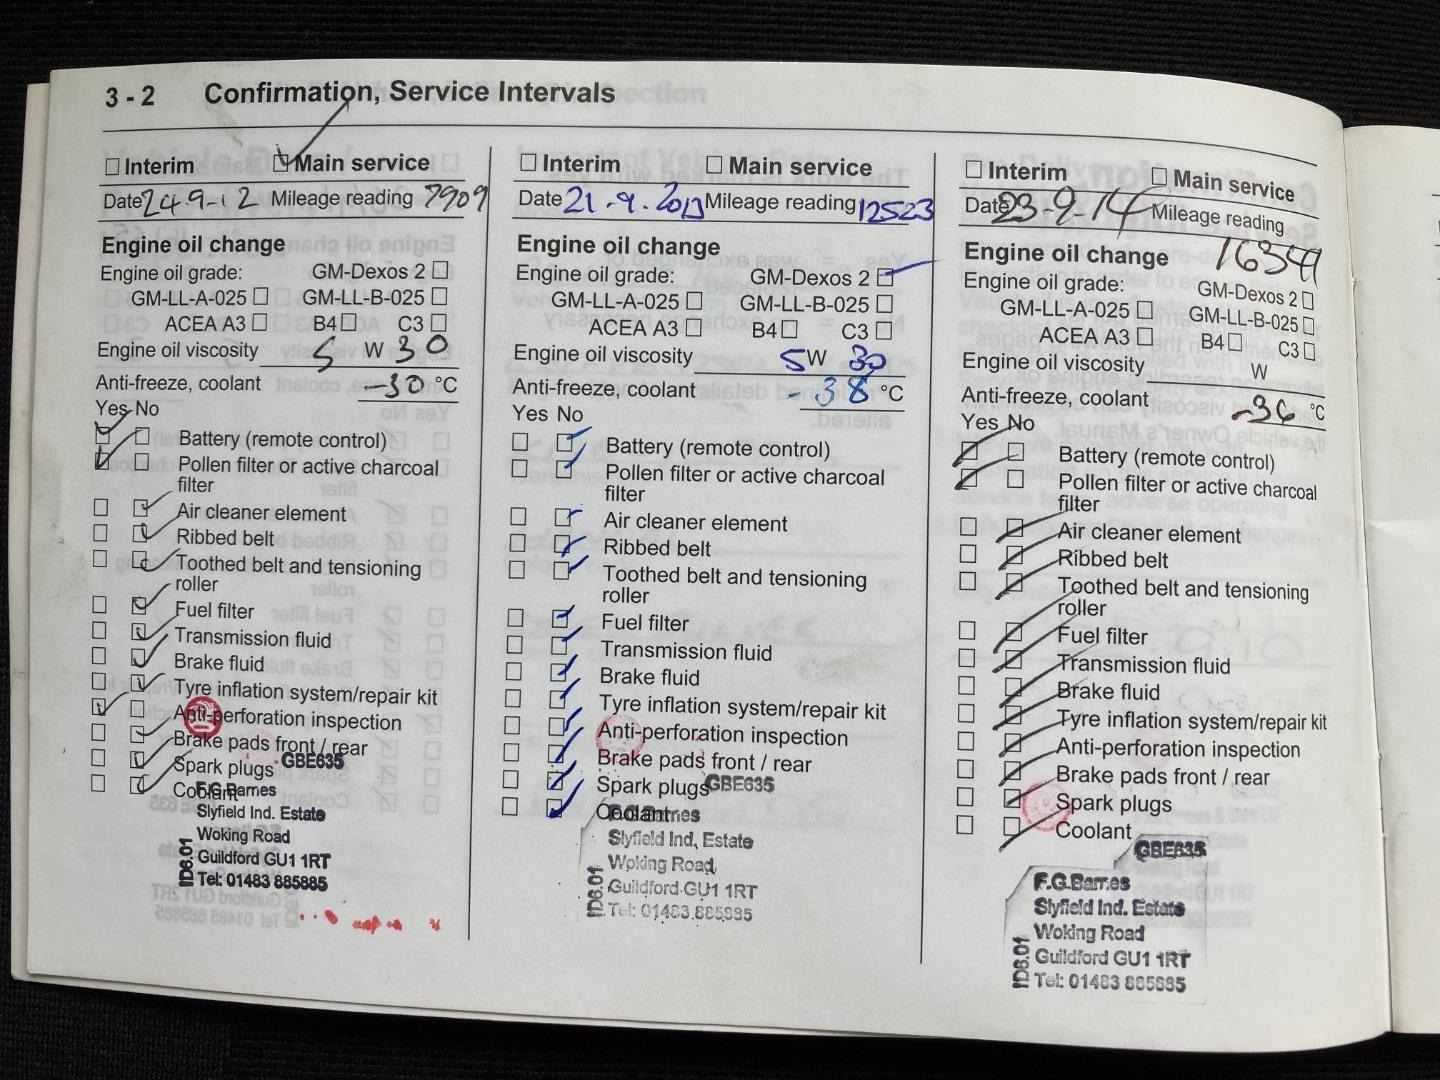 3 - 2 Confirmation, Service Intervals
Interim Main service
Date 24-9-12 Mileage reading 7909
Engine oil change
Engine oil grade: GM-Dexos 2
GM-LL-A-025 GM-LL-B-025
ACEA A3 B4 C3
Engine oil viscosity 5 W 30
Anti-freeze, coolant -30 °C
Yes No
Battery (remote control)
Pollen filter or active charcoal
filter
Air cleaner element
Ribbed belt
Toothed belt and tensioning
roller
Fuel filter
Transmission fluid
Brake fluid
Tyre inflation system/repair kit
Anti-perforation inspection
Brake pads front / rear
Spark plugs
Coolant
GBE635
F.G.Barnes
Slyfield Ind. Estate
Woking Road
Guildford GU1 1RT
Tel: 01483 885885
ID6.01
Interim Main service
Date 21-9-2013 Mileage reading 12523
Engine oil change
Engine oil grade: GM-Dexos 2
GM-LL-A-025 GM-LL-B-025
ACEA A3 B4 C3
Engine oil viscosity 5 W 30
Anti-freeze, coolant -38 °C
Yes No
Battery (remote control)
Pollen filter or active charcoal
filter
Air cleaner element
Ribbed belt
Toothed belt and tensioning
roller
Fuel filter
Transmission fluid
Brake fluid
Tyre inflation system/repair kit
Anti-perforation inspection
Brake pads front / rear
Spark plugs
Coolant
GBE635
F.G.Barnes
Slyfield Ind, Estate
Woking Road,
Guildford GU1 1RT
Tel: 01483 885885
ID6.01
Interim Main service
Date 23-9-14 Mileage reading
16349
Engine oil change
Engine oil grade: GM-Dexos 2
GM-LL-A-025 GM-LL-B-025
ACEA A3 B4 C3
Engine oil viscosity W
Anti-freeze, coolant -36 °C
Yes No
Battery (remote control)
Pollen filter or active charcoal
filter
Air cleaner element
Ribbed belt
Toothed belt and tensioning
roller
Fuel filter
Transmission fluid
Brake fluid
Tyre inflation system/repair kit
Anti-perforation inspection
Brake pads front / rear
Spark plugs
Coolant
GBE635
F.G.Barnes
Slyfield Ind. Estate
Woking Road
Guildford GU1 1RT
Tel: 01483 885885
ID6.01